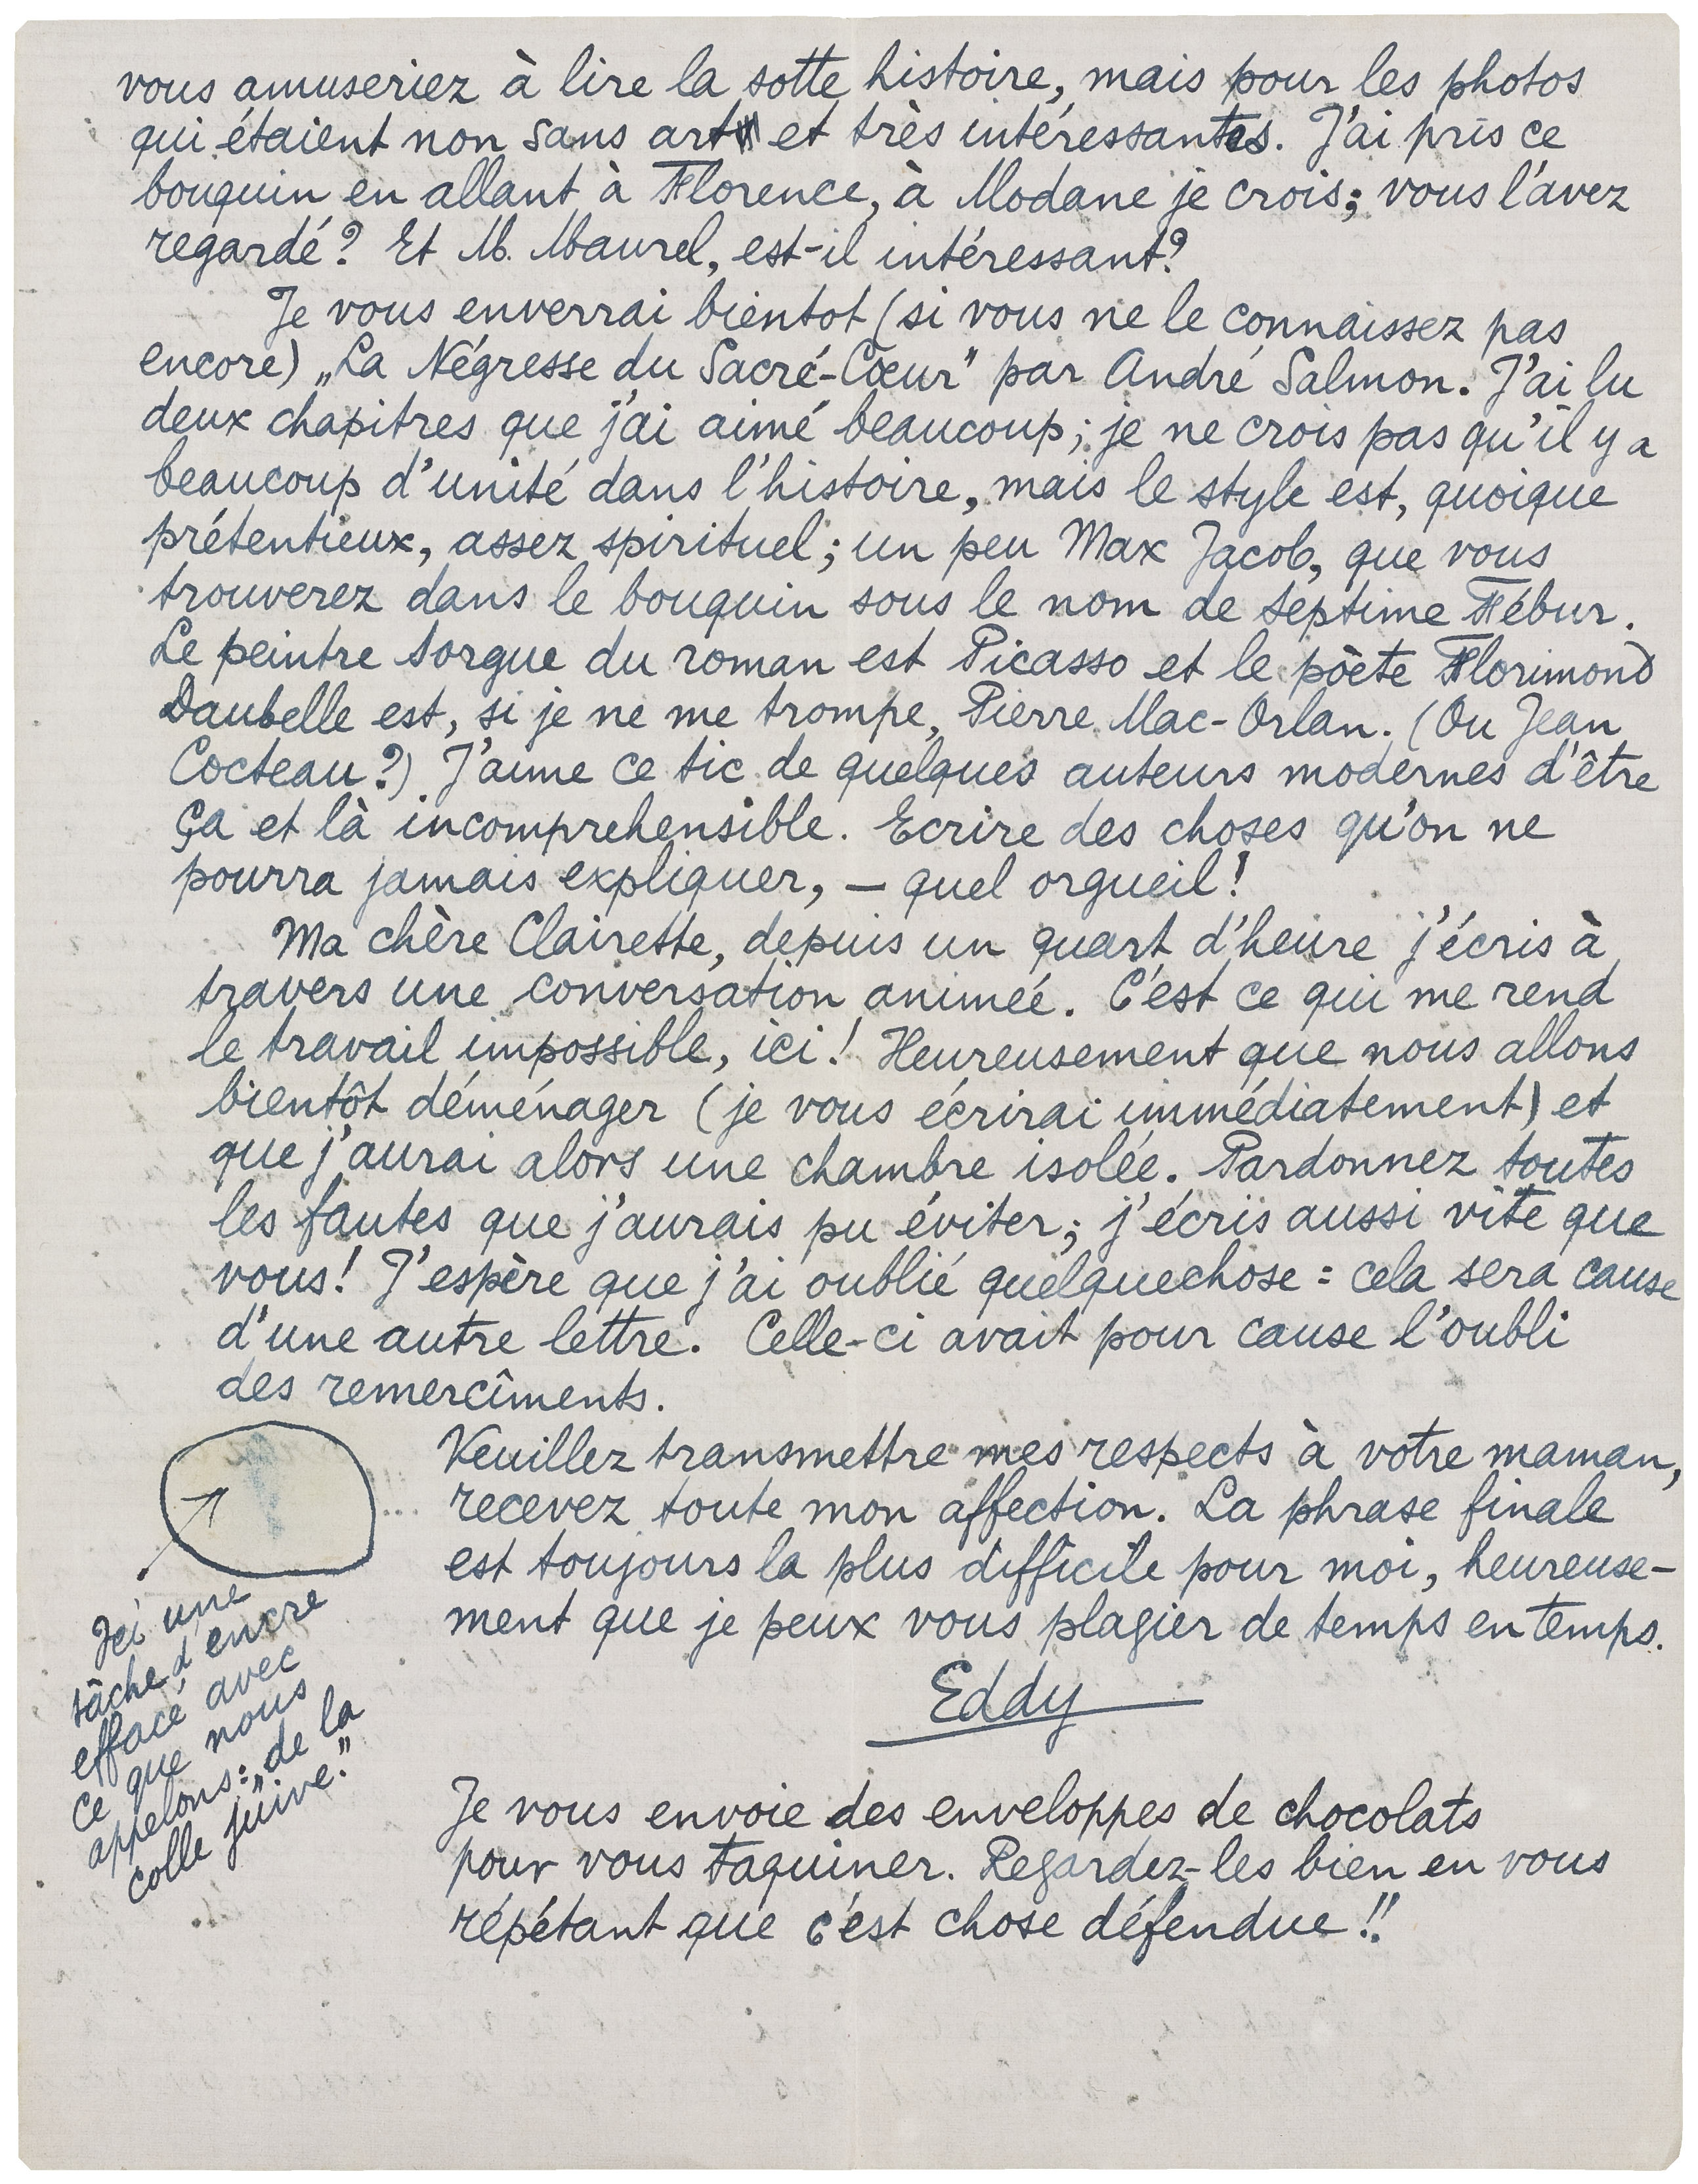 vous amuseriez à lire la sotte histoire, mais pour les photos
qui étaient non sans art et très intéressantes. J'ai pris ce
bouquin en allant à Florence, à Modane je crois; vous l'avez
regardé? Et M. Maurel, est-il intéressant?
Je vous enverrai bientot (si vous ne le connaissez pas
encore) „La Négresse du Sacré-Cœur" par André Salmon. J'ai lu
deux chapitres que j'ai aimé beaucoup; je ne crois pas qu'il y a
beaucoup d'unité dans l'histoire, mais le style est, quoique
prétentieux, assez spirituel; un peu Max Jacob, que vous
trouverez dans le bouquin sous le nom de Septime Fébur.
Le peintre Sorgue du roman est Picasso et le pòete Florimond
Daubelle est, si je ne me trompe, Pierre Mac-Orlan. (Ou Jean
Cocteau?) J'aime ce tic de quelques auteurs modernes d'être
Ça et là incomprehensible. Ecrire des choses qu'on ne
pourra jamais expliquer, — quel orgueil!
Ma chère Clairette, depuis un quart d'heure j'écris à
travers une conversation animeé. C'est ce qui me rend
le travail impossible, ici! Heureusement que nous allons
bientôt déménager (je vous écrirai immédiatement) et
que j'aurai alors une chambre isolée. Pardonnez toutes
les fautes que j'aurais pu éviter; j'écris aussi vite que
vous! J'espère que j'ai oublié quelquechose: cela sera cause
d'une autre lettre. Celle-ci avait pour cause l'oubli
des remercîments.
Veuillez transmettre mes respects à votre maman,
recevez toute mon affection. La phrase finale
est toujours la plus difficile pour moi, heureuse-
ment que je peux vous plagier de temps en temps.
Eddy
Ici une
tâche d'encre
effacé avec
ce que nous
appelons: „de la
colle juive."
Je vous envoie des enveloppes de chocolats
pour vous taquiner. Regardez-les bien en vous
répétant que c'est chose défendue!!